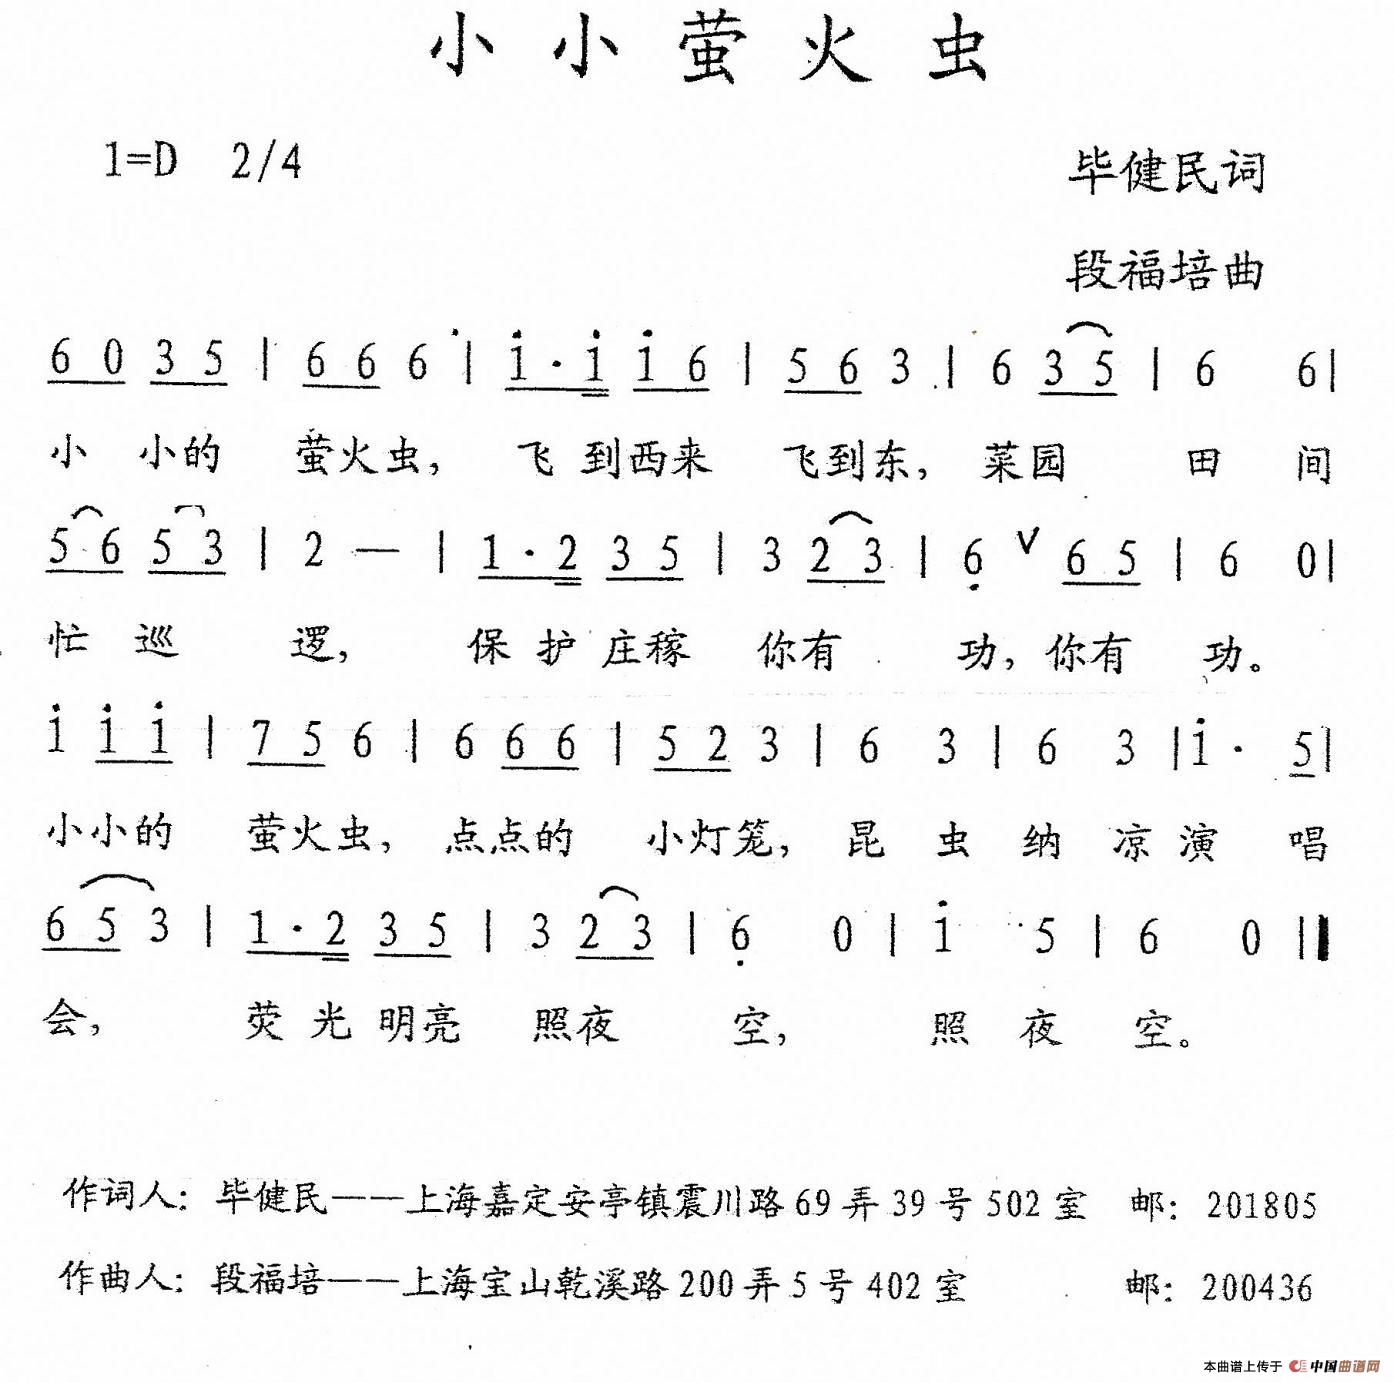 小小萤火虫
1=D 2/4
毕健民词
段福培曲
6 0 3 5 | 6 6 6 | i · i i 6 | 5 6 3 | 6 3 5 | 6 6 |
小 小的 萤火虫, 飞 到西来 飞到东, 菜园 田 间
5 6 5 3 | 2 — | 1 · 2 3 5 | 3 2 3 | 6 ∨ 6 5 | 6 0 |
忙 巡 逻, 保 护 庄稼 你有 功, 你有 功。
i i i | 7 5 6 | 6 6 6 | 5 2 3 | 6 3 | 6 3 | i · 5 |
小小的 萤火虫, 点点的 小灯笼, 昆 虫 纳 凉 演 唱
6 5 3 | 1 · 2 3 5 | 3 2 3 | 6 0 | i 5 | 6 0 ‖
会, 荧 光 明亮 照夜 空, 照 夜 空。
作词人: 毕健民——上海嘉定安亭镇震川路 69 弄 39 号 502 室 邮: 201805
作曲人: 段福培——上海宝山乾溪路 200 弄 5 号 402 室 邮: 200436
本曲谱上传于 中国曲谱网